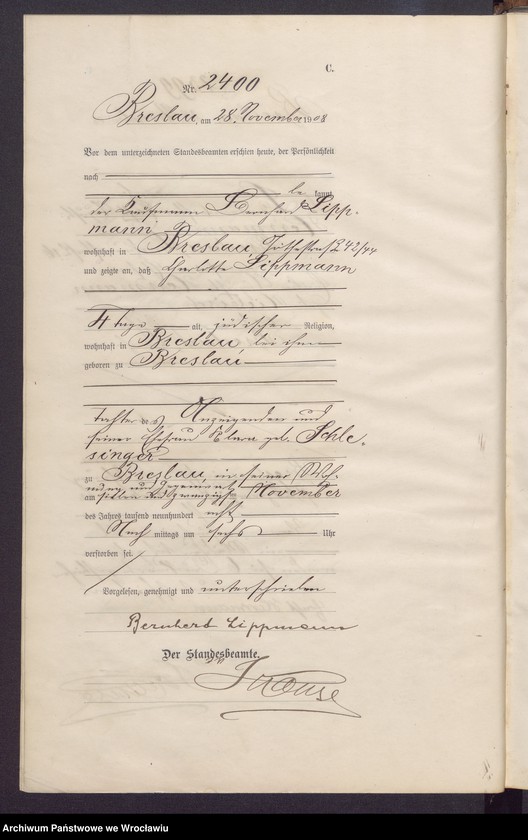 C.
Nr. 2400
Breslau, am 28. November 1908
Vor dem unterzeichneten Standesbeamten erschien heute, der Persönlichkeit
nach
be kannt,
der Kaufmann Bernhard Lipp-
mann
wohnhaft in Breslau, 42/44
und zeigte an, daß Charlotte Lippmann
4 Tage alt, jüdischer Religion,
wohnhaft in Breslau bei ihm
geboren zu Breslau
Tochter des Anzeigenden und
seiner Ehefrau Klara geb. Schle-
singer
zu Breslau, in seiner Woh-
nung und Gegenwart
am sieben und zwanzigsten November
des Jahres tausend neunhundert acht
Nach mittags um sechs Uhr
verstorben sei.
Vorgelesen, genehmigt und unterschrieben
Bernhard Lippmann
Der Standesbeamte.
Krause
Archiwum Państwowe we Wrocławiu